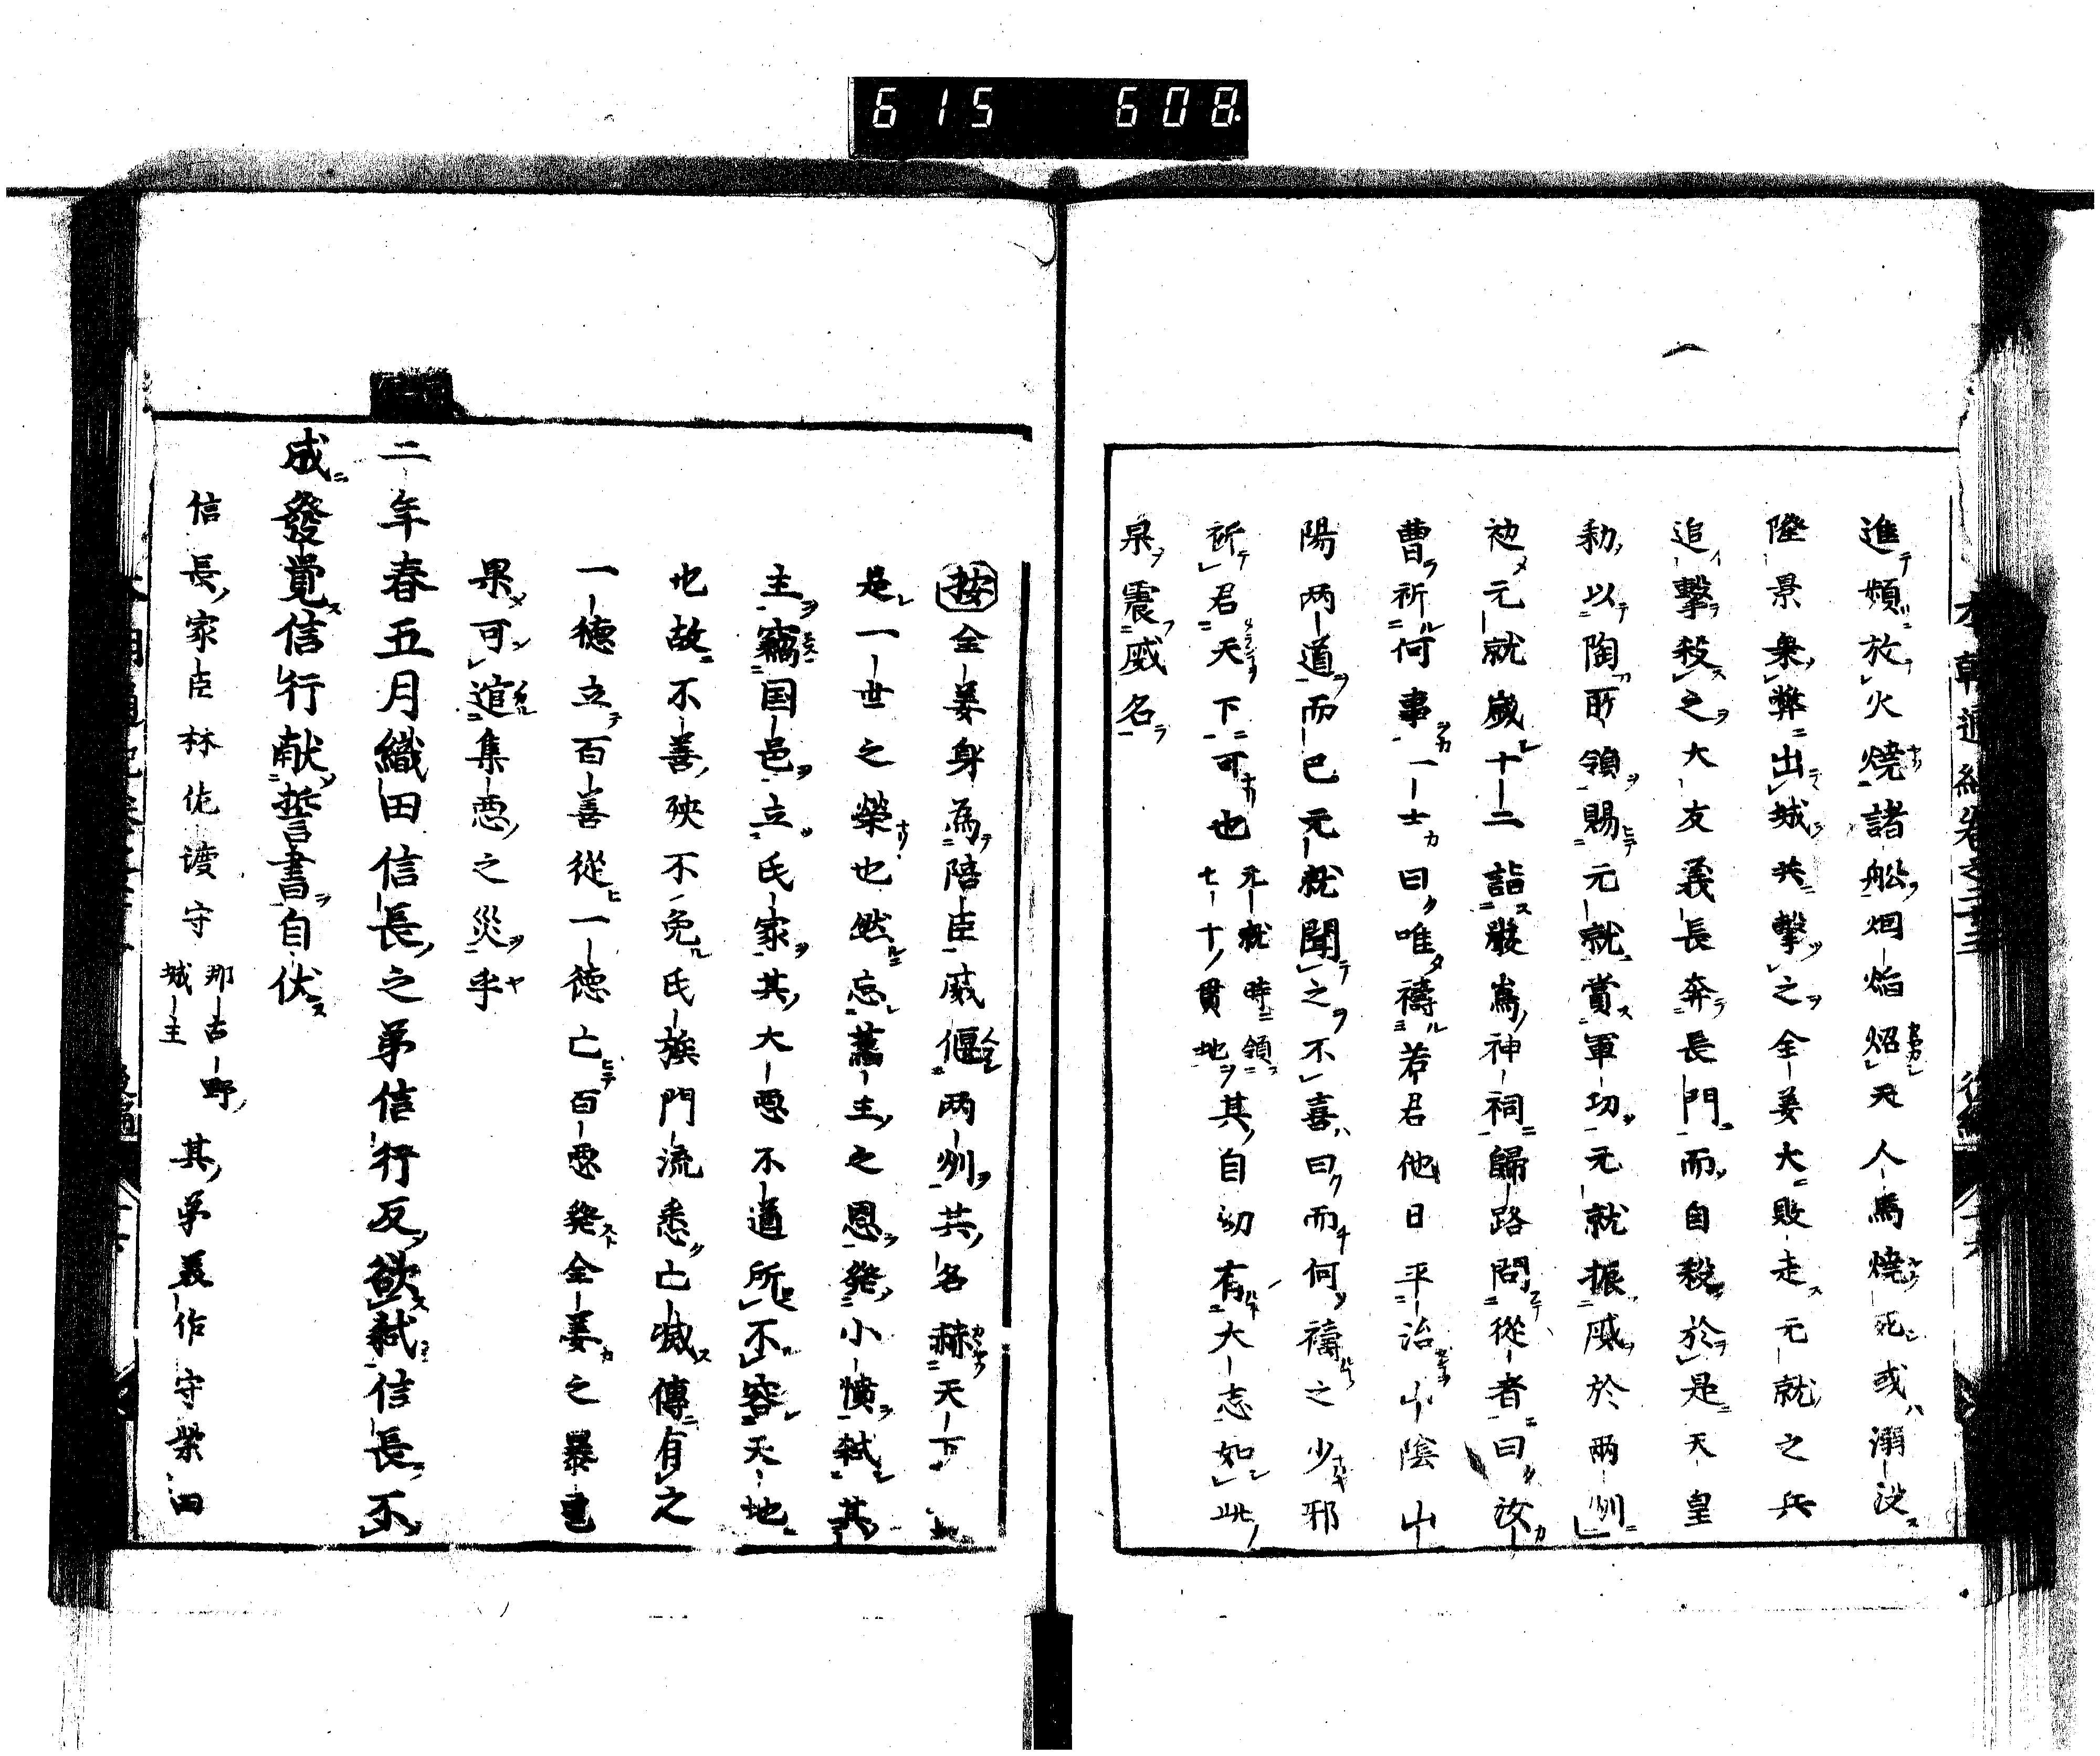 615 608
進頻放火燒諸船烟焰焰天人馬燒死或溺没
陸景衆弊出城共擊之全姜大敗走元就之兵
追擊殺之大友義長奔長門而自殺於是天皇
勅以陶所領賜元就賞軍功元就振威於兩州
初元就歲十二詣嚴嶌神祠歸路問從者曰汝
曹祈何事一士曰唯禱若君他日平治山陰山
陽两道而已元就聞之不喜曰而何禱之少邪
祈君天下可也元就時領七十貫地其自幼有大志如此
泉震威名
按全姜身為陪臣威偃两州共名赫天下
是一世之榮也然忘舊主之恩發小憤弑其
主竊国邑立氏家其大悪不道所不容天地
也故不善殃不免氏族門流悉亡滅傳有之
一德立百善從一德亡百悪發全姜之暴
果可逭集悪之災乎
二年春五月織田信長之弟信行反欲弑信長不
成發覺信行献誓書自伏
信長家臣林佐渡守那古野城主其弟美作守柴田